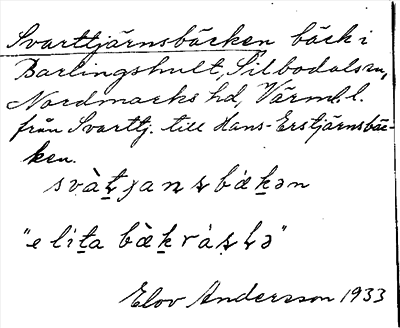 Svarttjärnsbäcken bäck i
Barlingshult, Silbodalssn,
Nordmarks hd, Värml. l.
från Svarttj. till Hans-Erstjärnsbäc-
ken.
svàt̠ɟanʂbæ̀k̠ən
"e lit̠a bæ̀k̠
Elov Andersson 1933